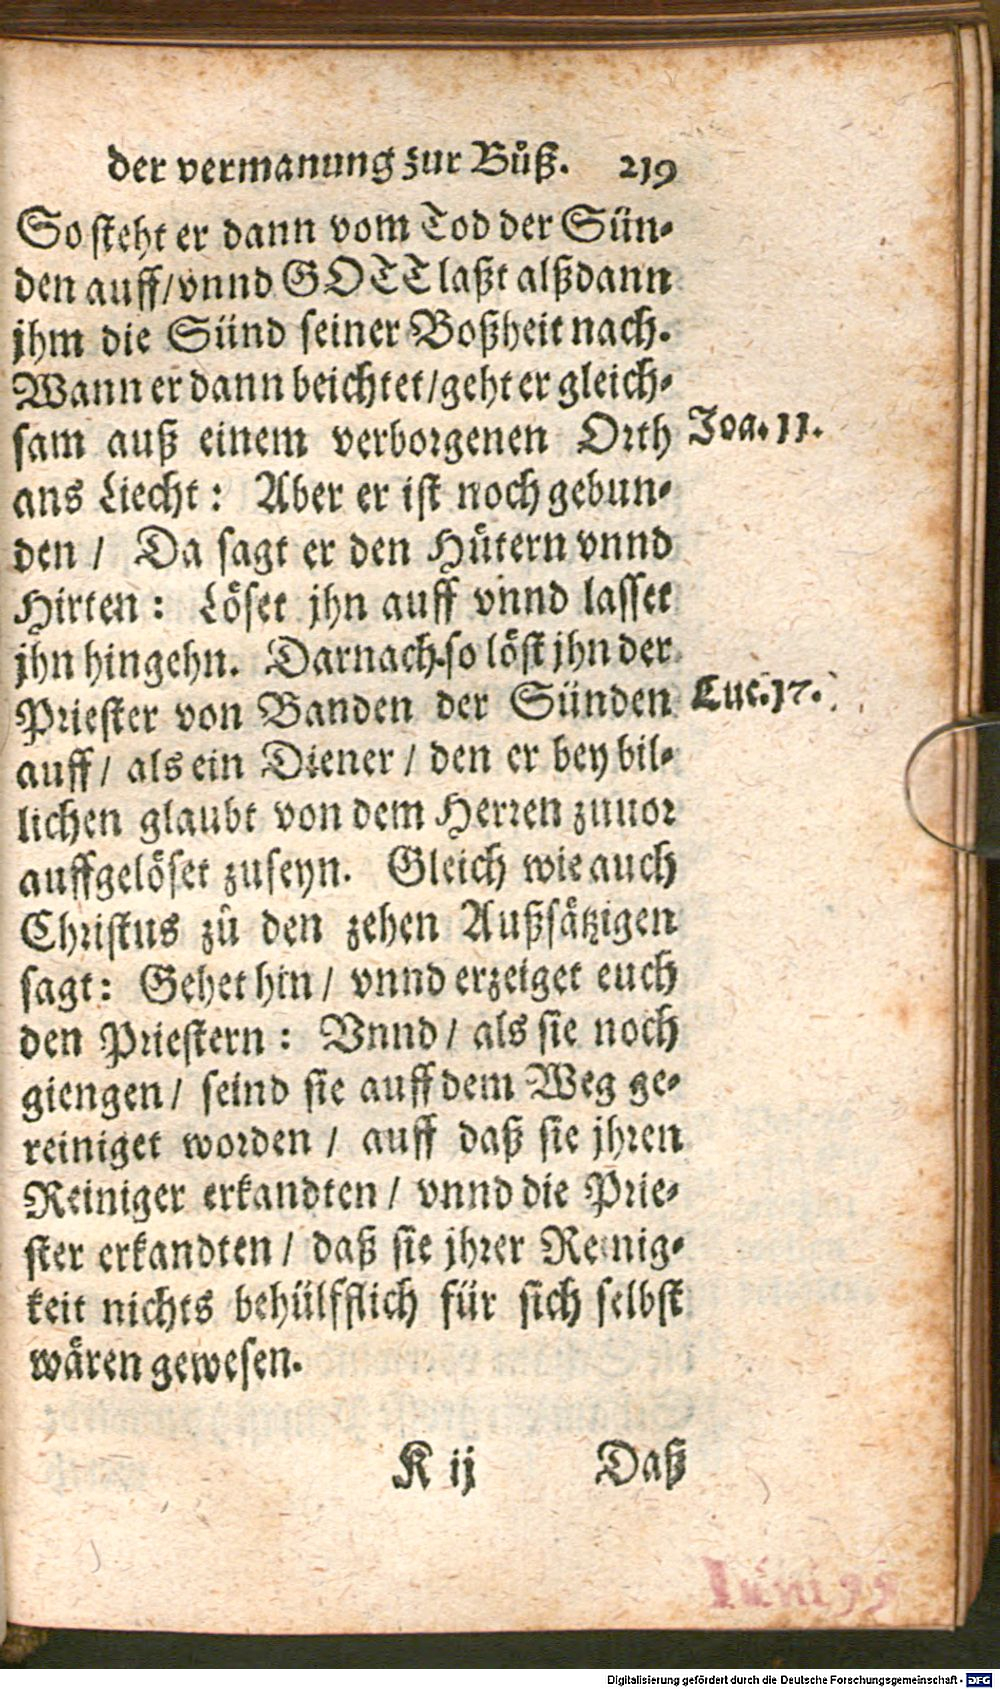 der vermanung zur Bůß. 219
So steht er dann vom Tod der Sün-
den auff/vnnd GOTT laßt alßdann
jhm die Sünd seiner Boßheit nach.
Wann er dann beichtet/geht er gleich-
sam auß einem verborgenen Orth
Joa. 11.
ans Liecht: Aber er ist noch gebun-
den / Da sagt er den Hütern vnnd
Hirten: Löset jhn auff vnnd lasset
jhn hingehn. Darnach so löst jhn der
Priester von Banden der Sünden
Luc. 17.
auff / als ein Diener / den er bey bil-
lichen glaubt von dem Herren zuuor
auffgelöset zuseyn. Gleich wie auch
Christus zů den zehen Außsätzigen
sagt: Gehet hin / vnnd erzeiget euch
den Priestern: Vnnd / als sie noch
giengen / seind sie auff dem Weg ge-
reiniget worden / auff daß sie jhren
Reiniger erkandten / vnnd die Prie-
ster erkandten / daß sie jhrer Reinig-
keit nichts behülfflich für sich selbst
wären gewesen.
K ij Daß
Juni 99
Digitalisierung gefördert durch die Deutsche Forschungsgemeinschaft - DFG